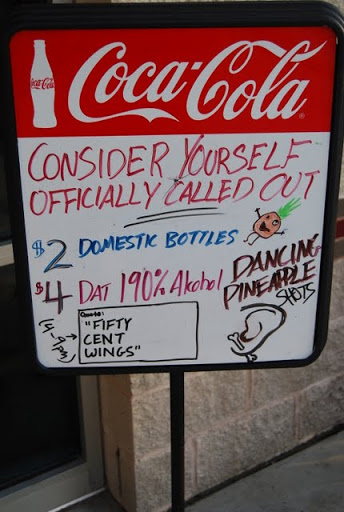 Coca-Cola
Coca-Cola
CONSIDER YOURSELF
OFFICIALLY CALLED OUT
$2 DOMESTIC BOTTLES
$4 DAT 190% Alkohol
DANCING
PINEAPPLE
SHOTS
(4-9pm)
Quote:
"FIFTY
CENT
WINGS"